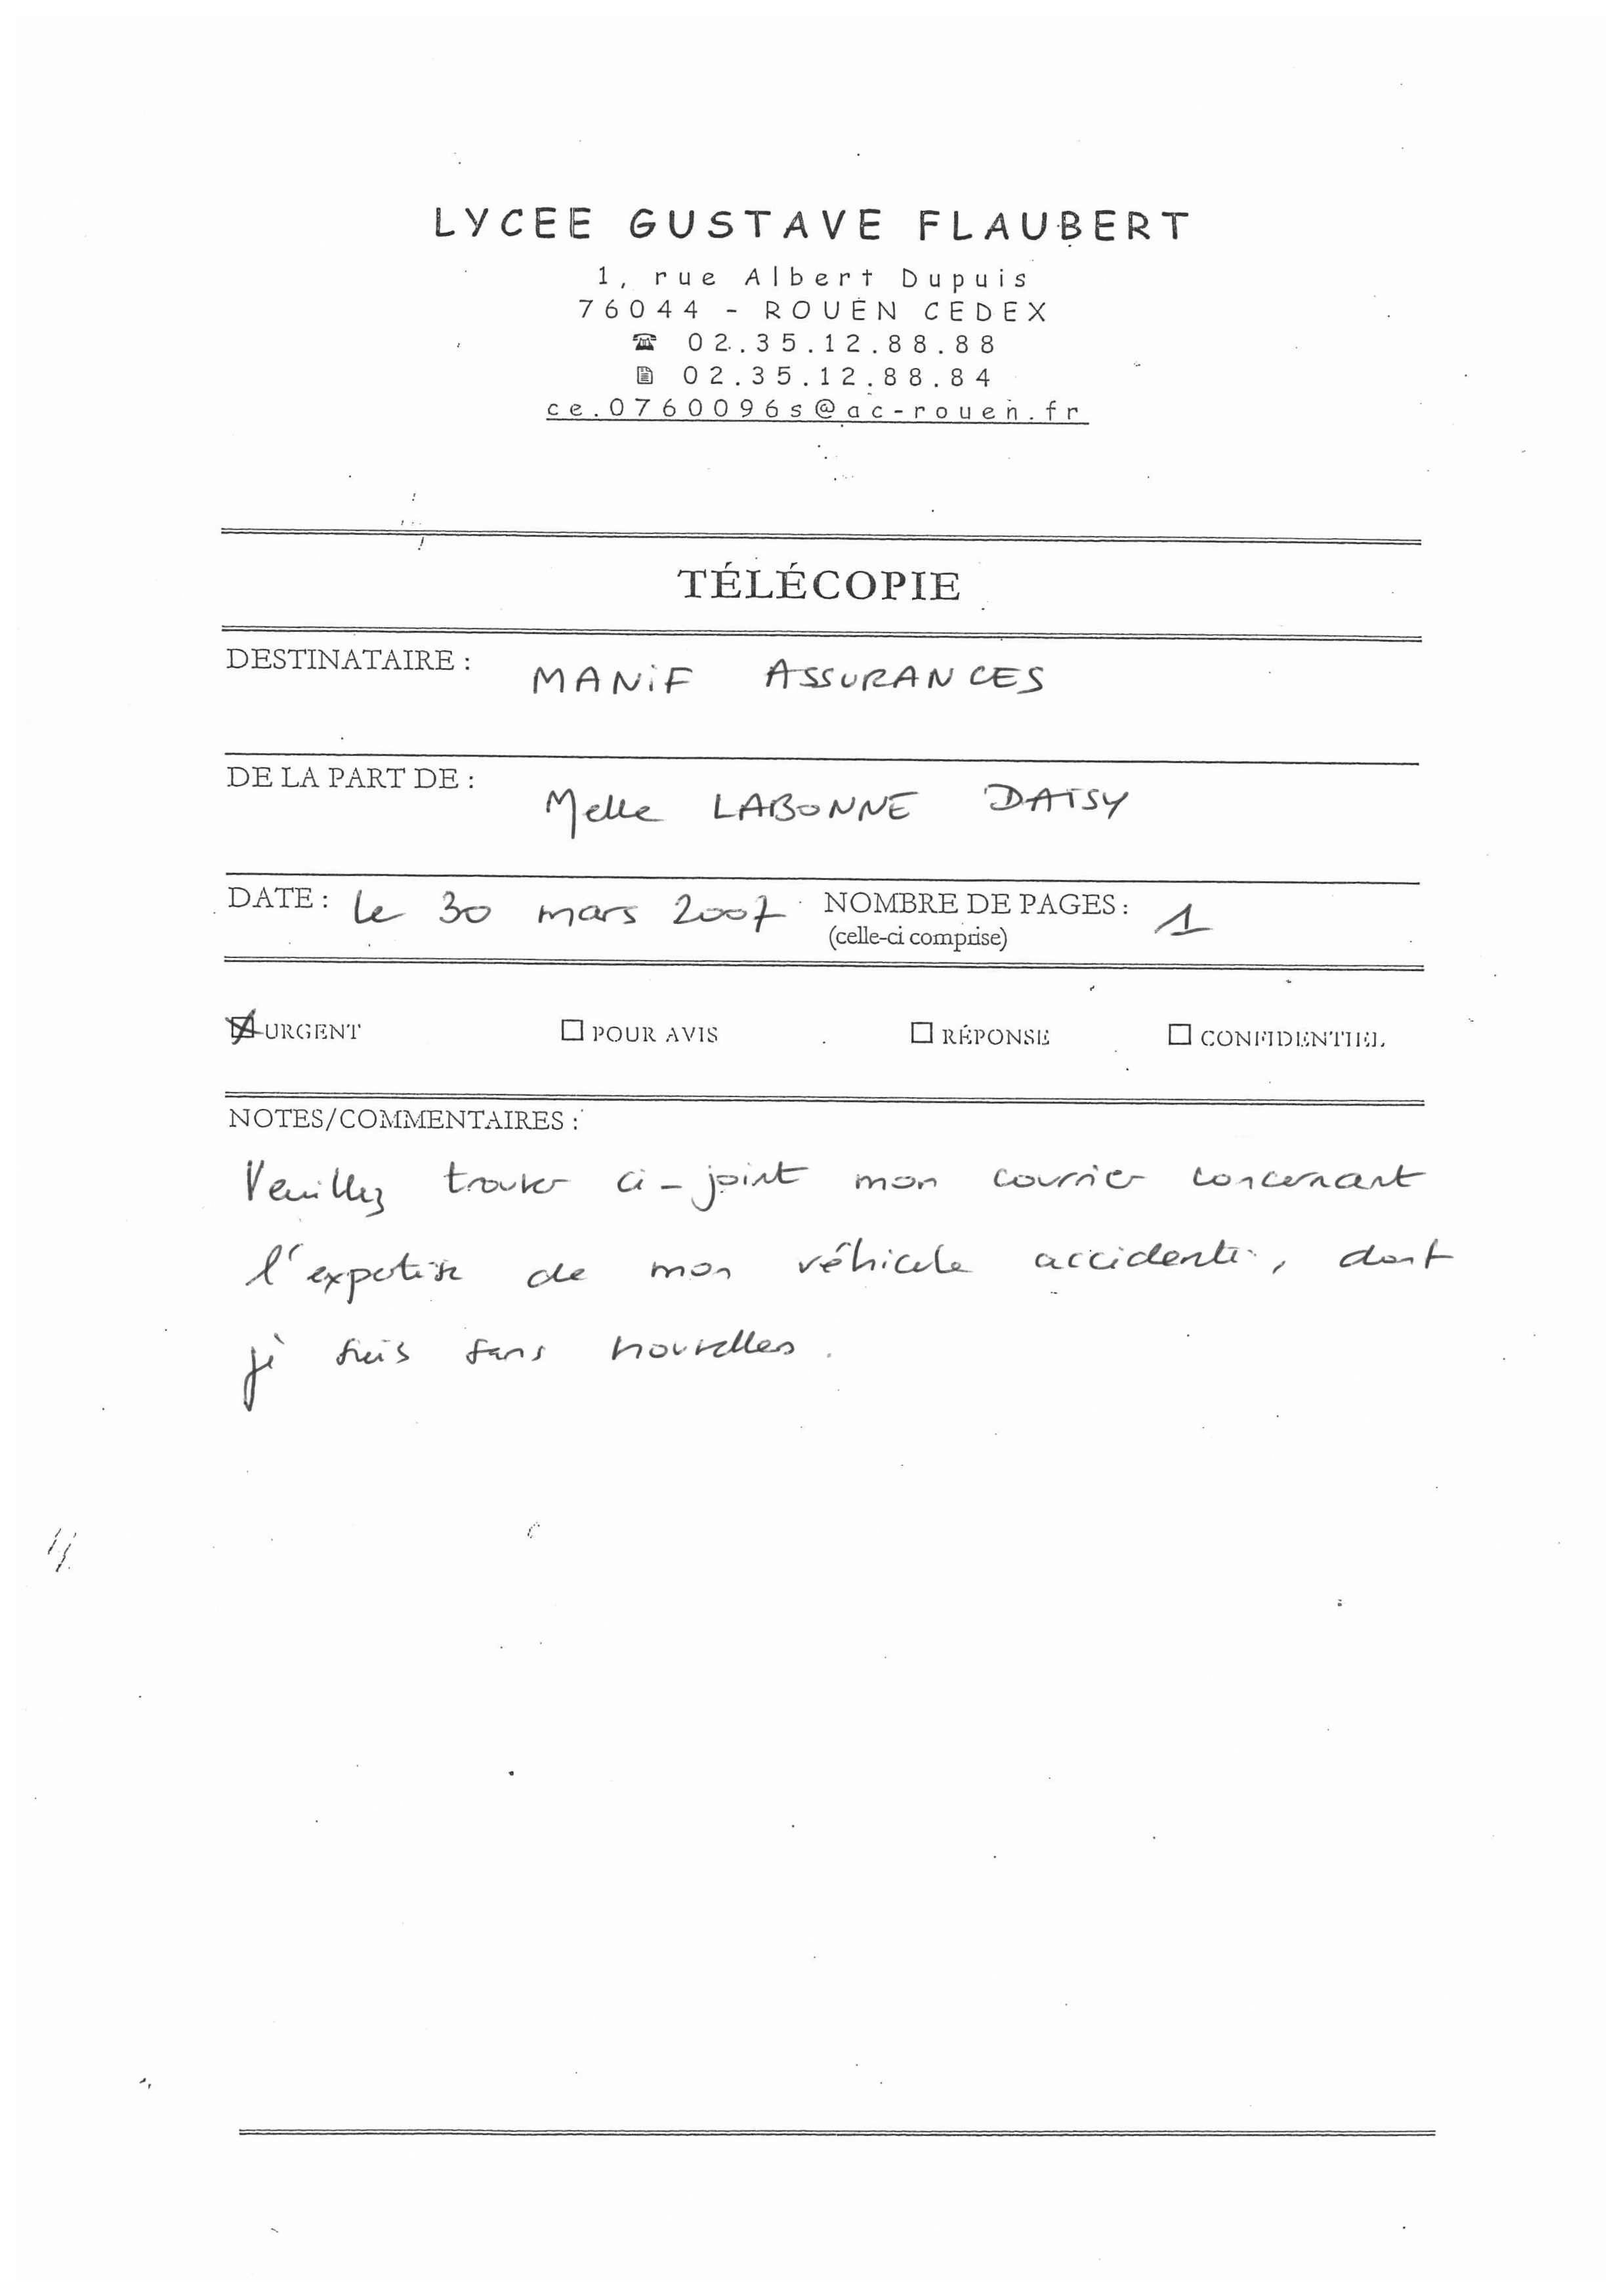 LYCEE GUSTAVE FLAUBERT
1, rue Albert Dupuis
76044 - ROUEN CEDEX
☎ 02.35.12.88.88
02.35.12.88.84
ce.0760096s@ac-rouen.fr
TÉLÉCOPIE
DESTINATAIRE : MANIF ASSURANCES
DE LA PART DE : Melle LABONNE DAISY
DATE : le 30 mars 2007 NOMBRE DE PAGES : 1
(celle-ci comprise)
☒ URGENT ☐ POUR AVIS ☐ RÉPONSE ☐ CONFIDENTIEL
NOTES/COMMENTAIRES :
Veuillez trouver ci-joint mon courrier concernant
l'expertise de mon véhicule accidenté, dont
je suis sans nouvelles.